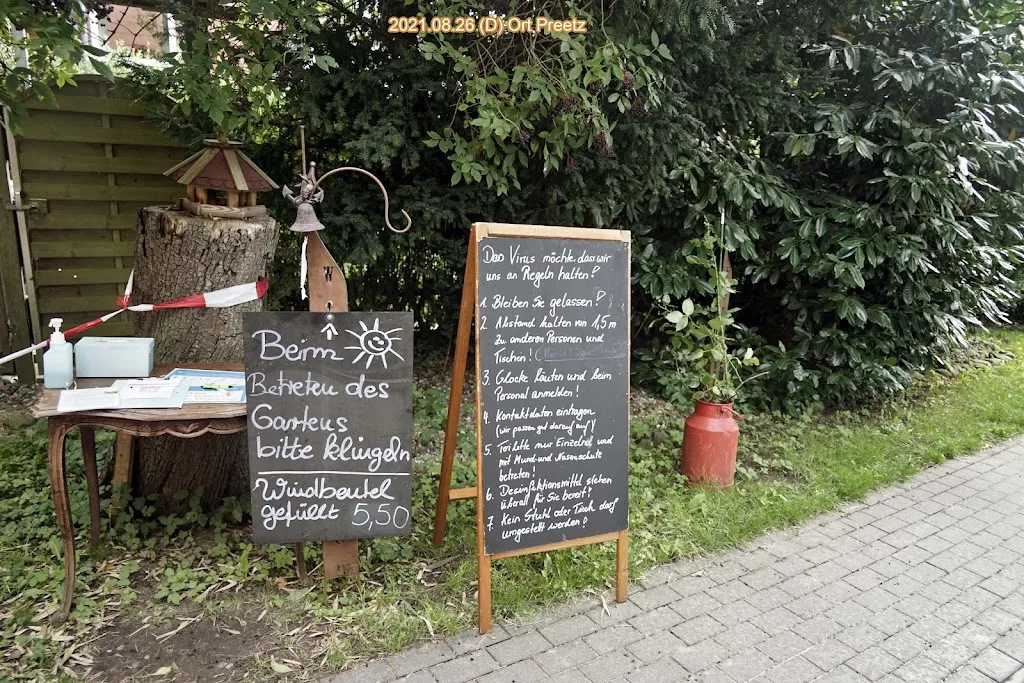 2021.08.26 (D) Ort Preetz
W
Beim
Betreten des
Gartens
bitte klingeln
Windbeutel
gefüllt 5,50
Das Virus möchte, dass wir
uns an Regeln halten!
1. Bleiben Sie gelassen!
2. Abstand halten von 1,5 m
zu anderen Personen und
Tischen!
3. Glocke läuten und beim
Personal anmelden!
4. Kontaktdaten eintragen
(wir passen gut darauf auf)
5. Toilette nur Einzeln und
mit Mund-und Nasenschutz
betreten!
6. Desinfektionsmittel stehen
überall für Sie bereit!
7. Kein Stuhl oder Tisch darf
umgestellt werden!